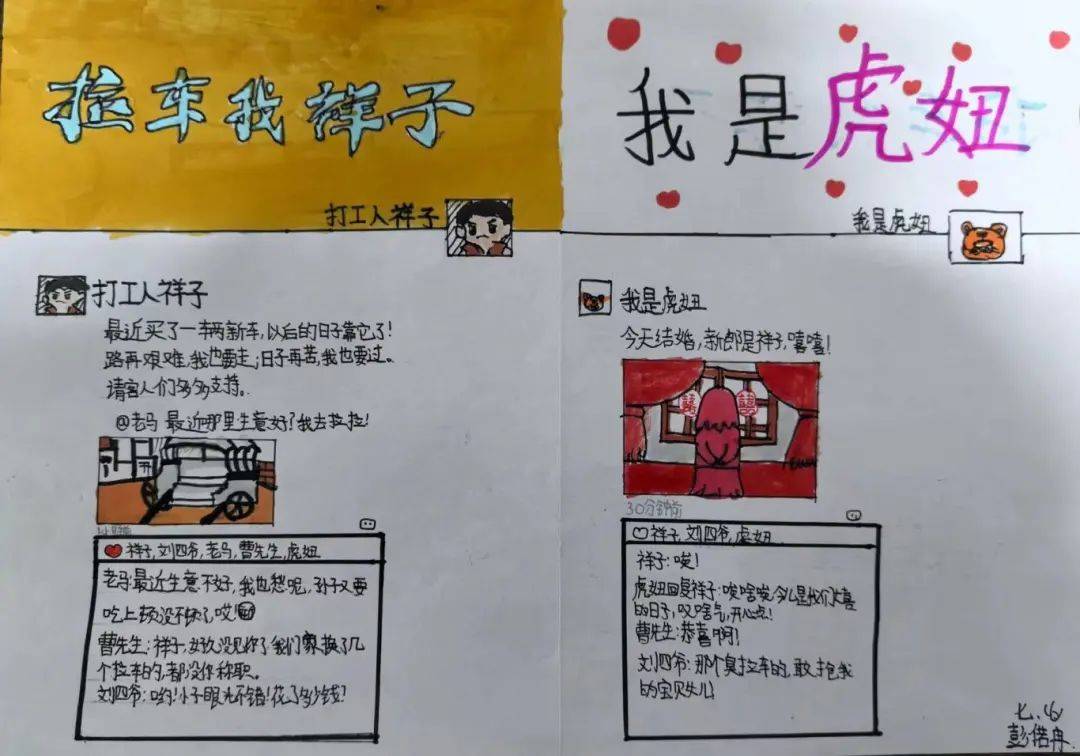 拉车我祥子
打工人祥子
打工人祥子
最近买了一车两新车,以后的日子靠它了!
路再艰难,我也要走;日子再苦,我也要过。
请客人们多多支持。
@老马 最近那里生意好?我去拉拉!
祥子,刘四爷,老马,曹先生,虎妞
老马:最近生意不好,我也愁呢,孙子又要
吃上顿没下顿了,哎!
曹先生:祥子,好久没见你了,我们家换了几
个拉车的,都没你称职。
刘四爷:哟!小子眼光不错!花了多少钱?
我是虎妞
我是虎妞
我是虎妞
今天结婚,新郎是祥子,嘻嘻!
囍 囍
30分钟前
祥子,刘四爷,虎妞
祥子:唉!
虎妞回复祥子:唉啥唉,今儿是我们大喜
的日子,叹啥气,开心点!
曹先生:恭喜啊!
刘四爷:那个臭拉车的,敢抢我
的宝贝女儿
七.